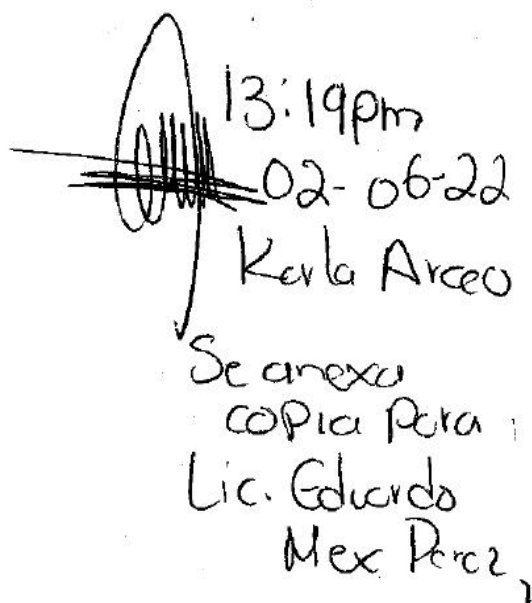 13:19pm
02-06-22
Karla Arceo
Se anexa
copia Para
Lic. Eduardo
Mex Perez